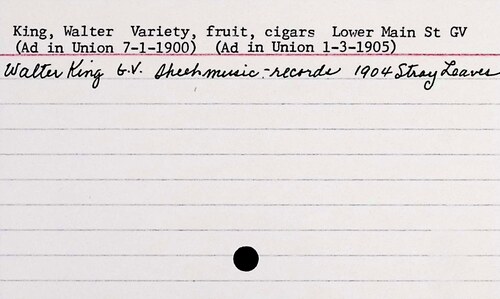 King, Walter Variety, fruit, cigars Lower Main St GV
(Ad in Union 7-1-1900) (Ad in Union 1-3-1905)
Walter King G.V. Sheet music - records 1904 Stray Leaves